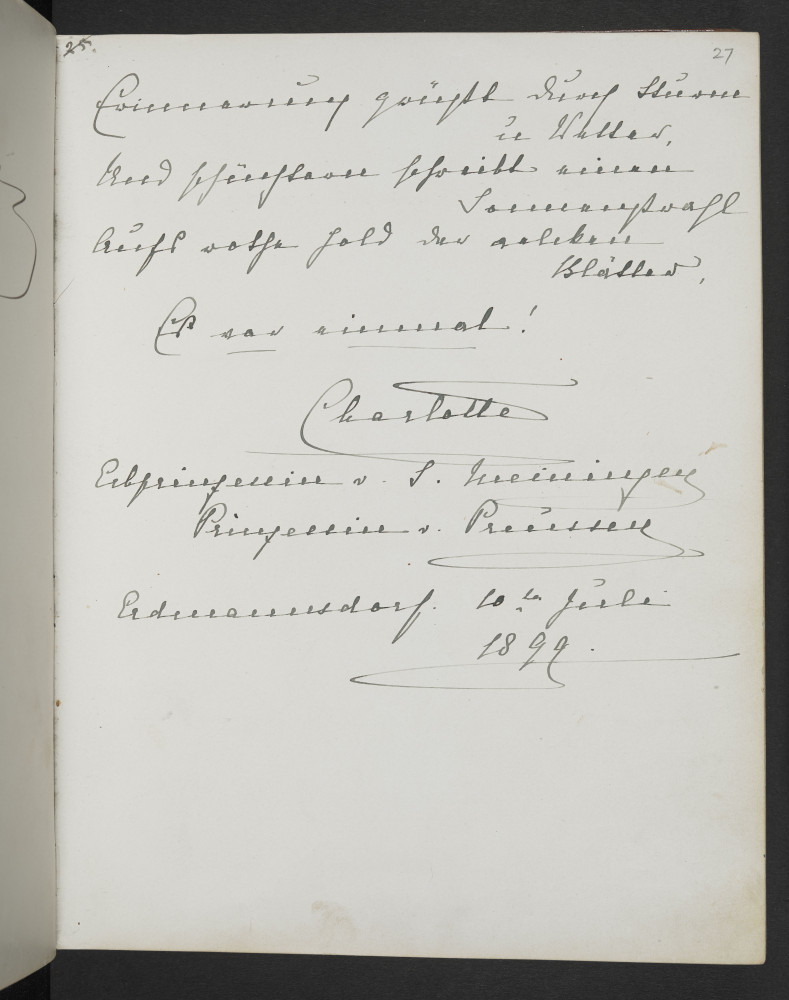 25.
27
Erinnerung grüßt durch Sturm
u Wetter,
Und schüchtern schreibt einen
Sonnenstrahl
Aufs rothe Gold der welken
Blätter,
Es war einmal!
Charlotte
Erbprinzessin v. S. Meiningen
Prinzessin v. Preussen
Erdmannsdorf. 10ten Juli
1899.